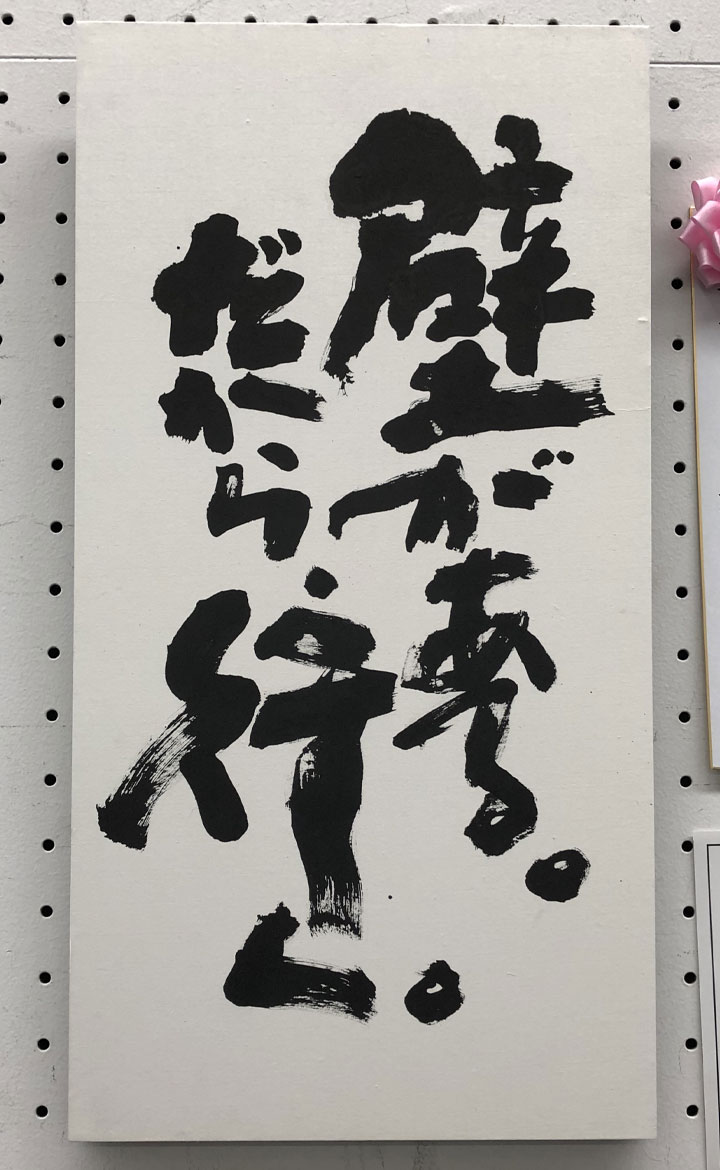 壁がある。
だから、行く。